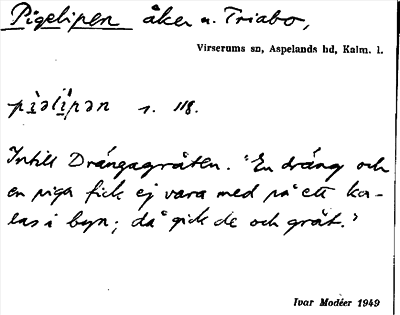 Pigelipen åker n. Triabo,
Virserums sn, Aspelands hd, Kalm. l.
pi̱ə̀li̱pən s. 118.
Intill Drängagråten. "En dräng och
en piga fick ej vara med på ett ka-
las i byn; då gick de och grät."
Ivar Modéer 1949